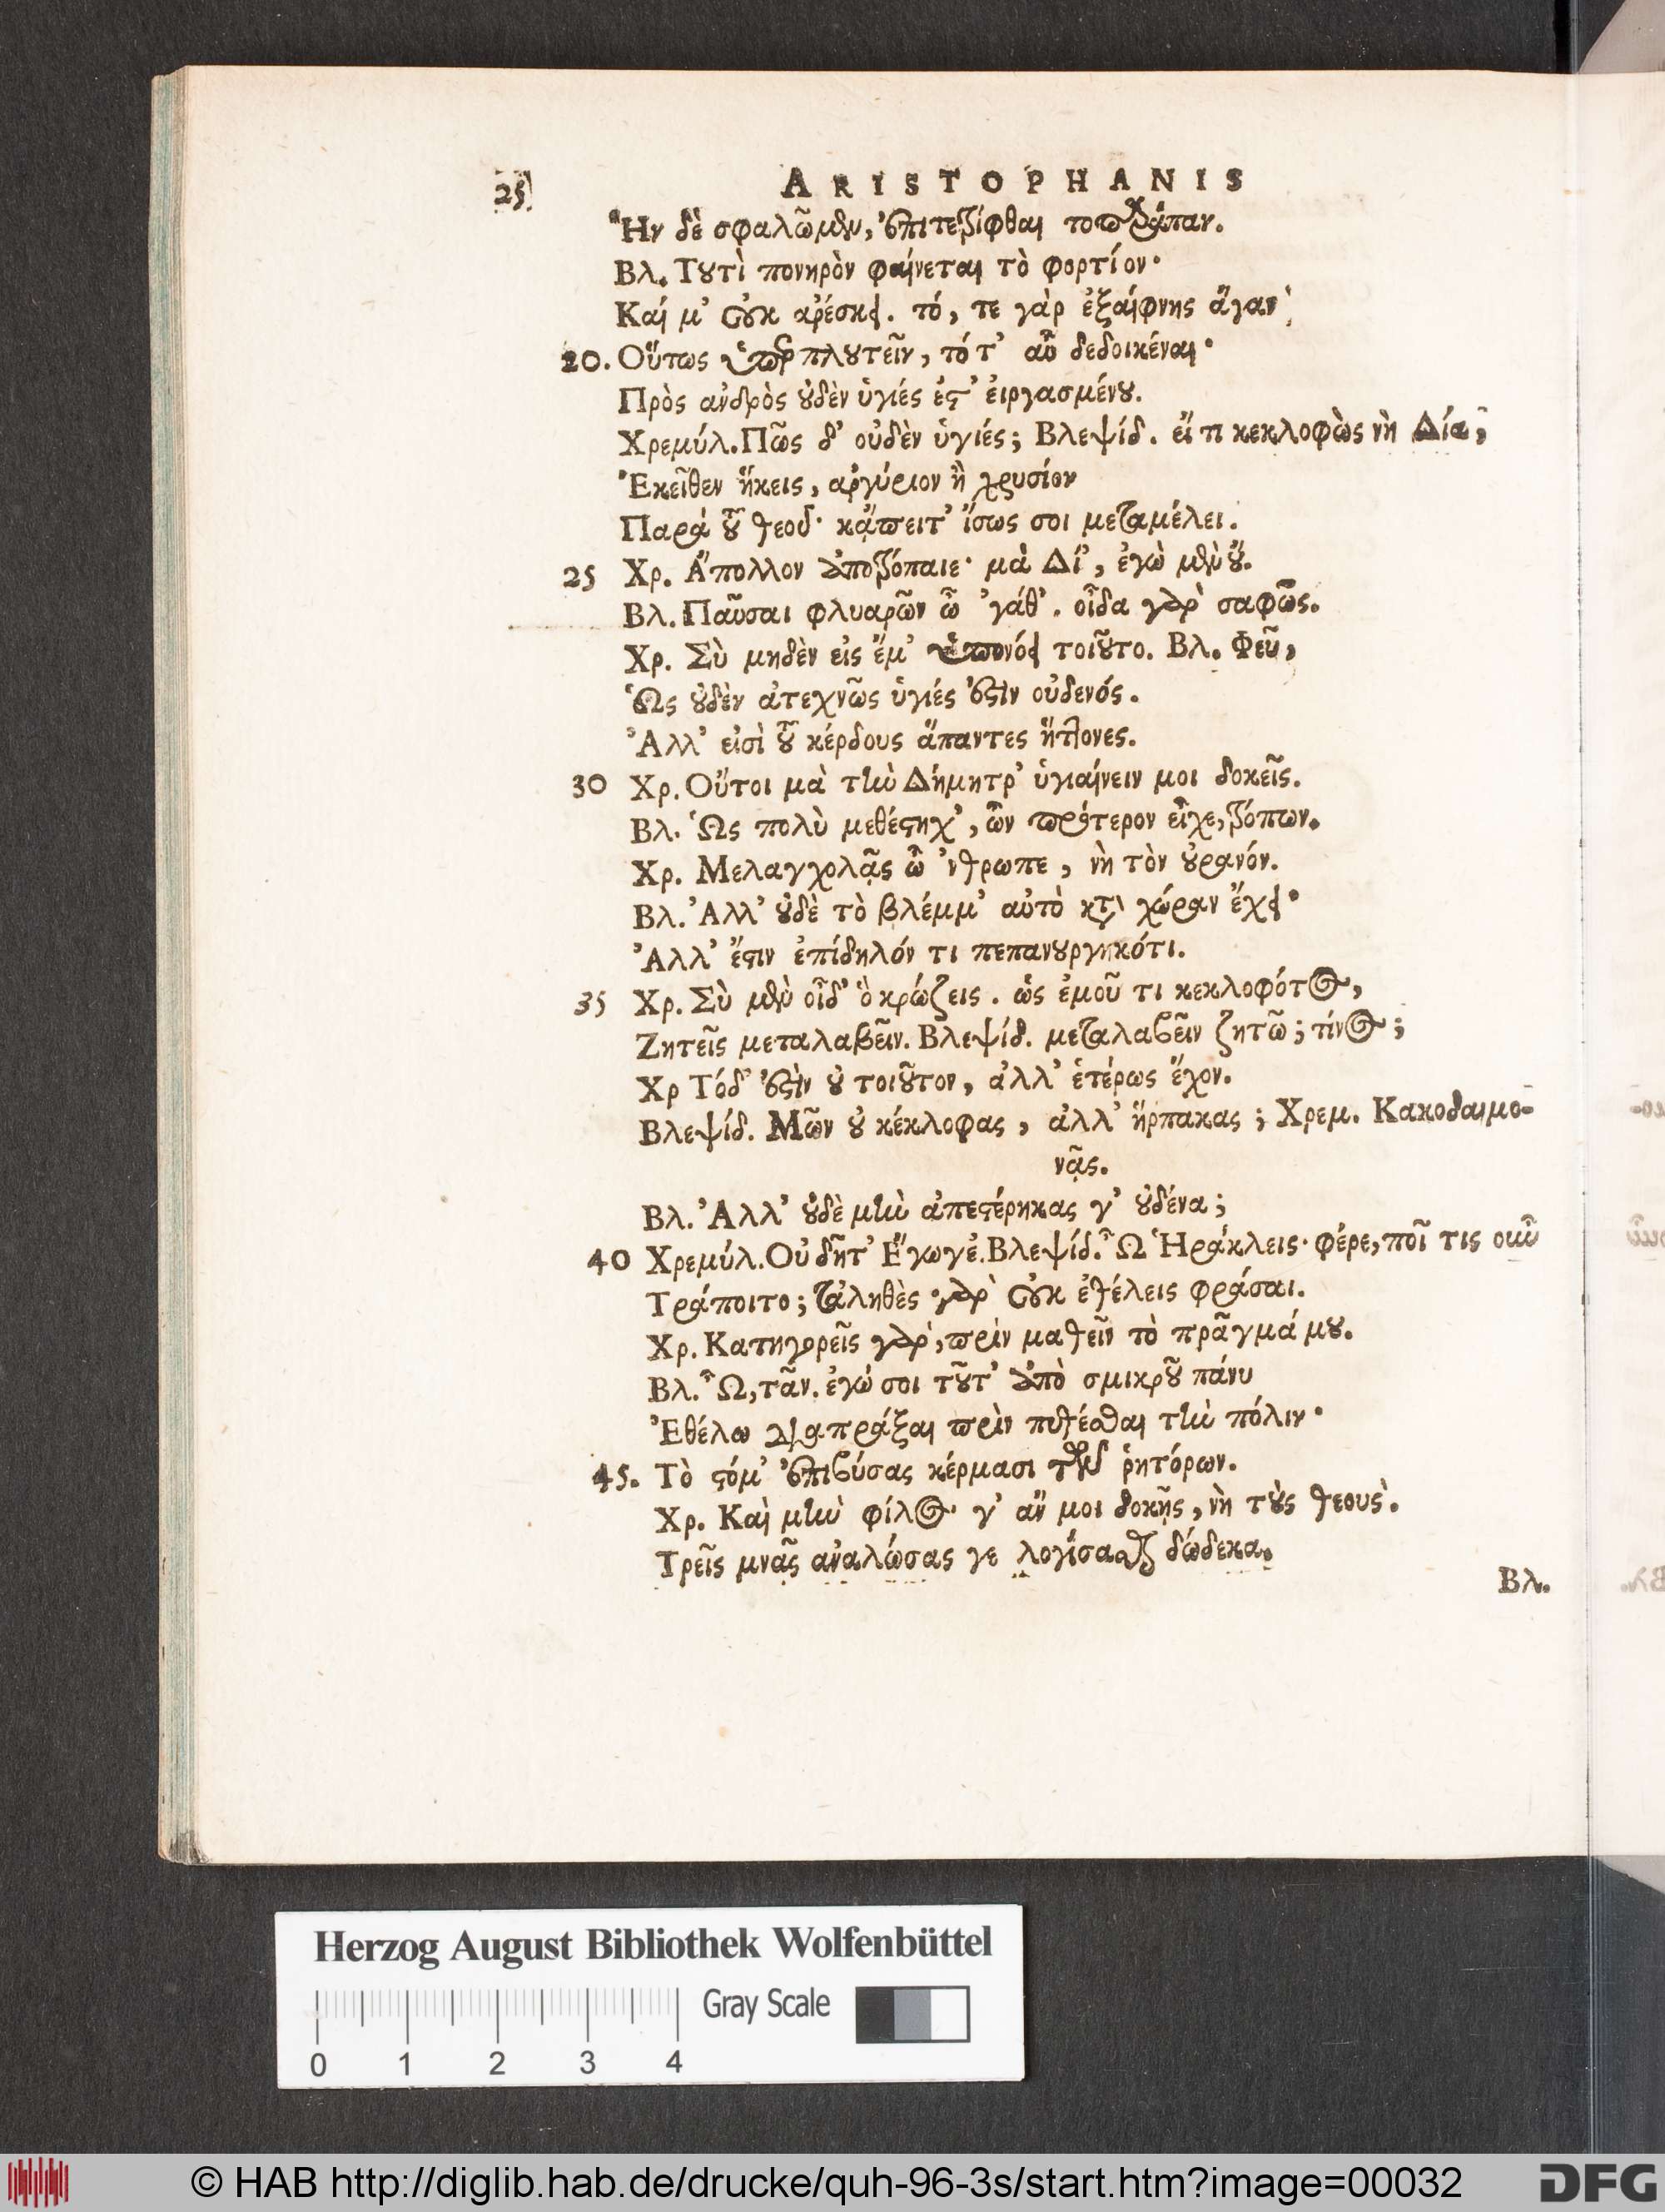 25
ARISTOPHANIS
Ἢν δὲ σφαλῶμεν, ἐπιτετρίφθαι τοπαράπαν.
Βλ. Τουτὶ πονηρὸν φαίνεται τὸ φορτίον·
Καί μ' οὐκ ἀρέσκει. τό, τε γὰρ ἐξαίφνης ἄγαν
20. Οὕτως ὑπερπλουτεῖν, τό τ' αὖ δεδοικέναι·
Πρὸς ἀνδρὸς οὐδὲν ὑγιές ἐστ' εἰργασμένου.
Χρεμύλ. Πῶς δ' οὐδὲν ὑγιές; Βλεψίδ. εἴ τι κεκλοφὼς νὴ Δία,
Ἐκεῖθεν ἥκεις, ἀργύριον ἢ χρυσίον
Παρά τοῦ θεοῦ· κᾄπειτ' ἴσως σοι μεταμέλει.
25 Χρ. Ἄπολλον ἀποτρόπαιε· μὰ Δί', ἐγὼ μὲν οὔ.
Βλ. Παῦσαι φλυαρῶν ὦ 'γάθ'. οἶδα γὰρ σαφῶς.
Χρ. Σὺ μηδὲν εἰς ἔμ' ὑπονόει τοιοῦτο. Βλ. Φεῦ,
Ὡς οὐδὲν ἀτεχνῶς ὑγιές ἐστὶν οὐδενός.
Ἀλλ' εἰσὶ τοῦ κέρδους ἅπαντες ἥττονες.
30 Χρ. Οὔτοι μὰ τὴν Δήμητρ' ὑγιαίνειν μοι δοκεῖς.
Βλ. Ὡς πολὺ μεθέστηχ', ὧν πρότερον εἶχε, τρόπων.
Χρ. Μελαγχολᾷς ὦ 'νθρωπε, νὴ τὸν οὐρανόν.
Βλ. Ἀλλ' οὐδὲ τὸ βλέμμ' αὐτὸ κατὰ χώραν ἔχει·
Ἀλλ' ἔστιν ἐπίδηλόν τι πεπανουργηκότι.
35 Χρ. Σὺ μὲν οἶδ' ὃ κρώζεις. ὡς ἐμοῦ τι κεκλοφότος,
Ζητεῖς μεταλαβεῖν. Βλεψίδ. μεταλαβεῖν ζητῶ; τίνος;
Χρ Τόδ' ἐστὶν οὐ τοιοῦτον, ἀλλ' ἑτέρως ἔχον.
Βλεψίδ. Μῶν οὐ κέκλοφας, ἀλλ' ἥρπακας; Χρεμ. Κακοδαιμο-
νᾷς.
Βλ. Ἀλλ' οὐδὲ μὴν ἀπεστέρηκας γ' οὐδένα;
40 Χρεμύλ. Οὐ δῆτ' Ἔγωγέ. Βλεψίδ. Ὦ Ἡράκλεις· φέρε, ποῖ τις οὖν
Τράποιτο; τἀληθὲς γὰρ οὐκ ἐθέλεις φράσαι.
Χρ. Κατηγορεῖς γὰρ, πρὶν μαθεῖν τὸ πρᾶγμά μου.
Βλ. Ὦ, τᾶν. ἐγώ σοι τοῦτ' ἀπὸ σμικροῦ πάνυ
Ἐθέλω διαπράξαι πρὶν πυθέσθαι τὴν πόλιν·
45. Τὸ στόμ' ἐπιβύσας κέρμασι τῶν ῥητόρων.
Χρ. Καὶ μὴν φίλος γ' ἄν μοι δοκῇς, νὴ τοὺς θεούς.
Τρεῖς μνᾶς ἀναλώσας γε λογίσασθαι δώδεκα.
Βλ.
Herzog August Bibliothek Wolfenbüttel
Gray Scale
0 1 2 3 4
© HAB http://diglib.hab.de/drucke/quh-96-3s/start.htm?image=00032
DFG